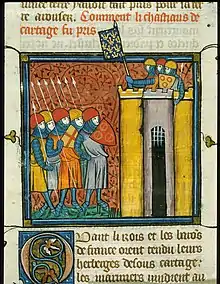 Comment li chastiaus de
cartage fu pris
Quant li rois et les barōs
de france orent tendu leurs
herberges desous cartage:
les mariniers vindrent au